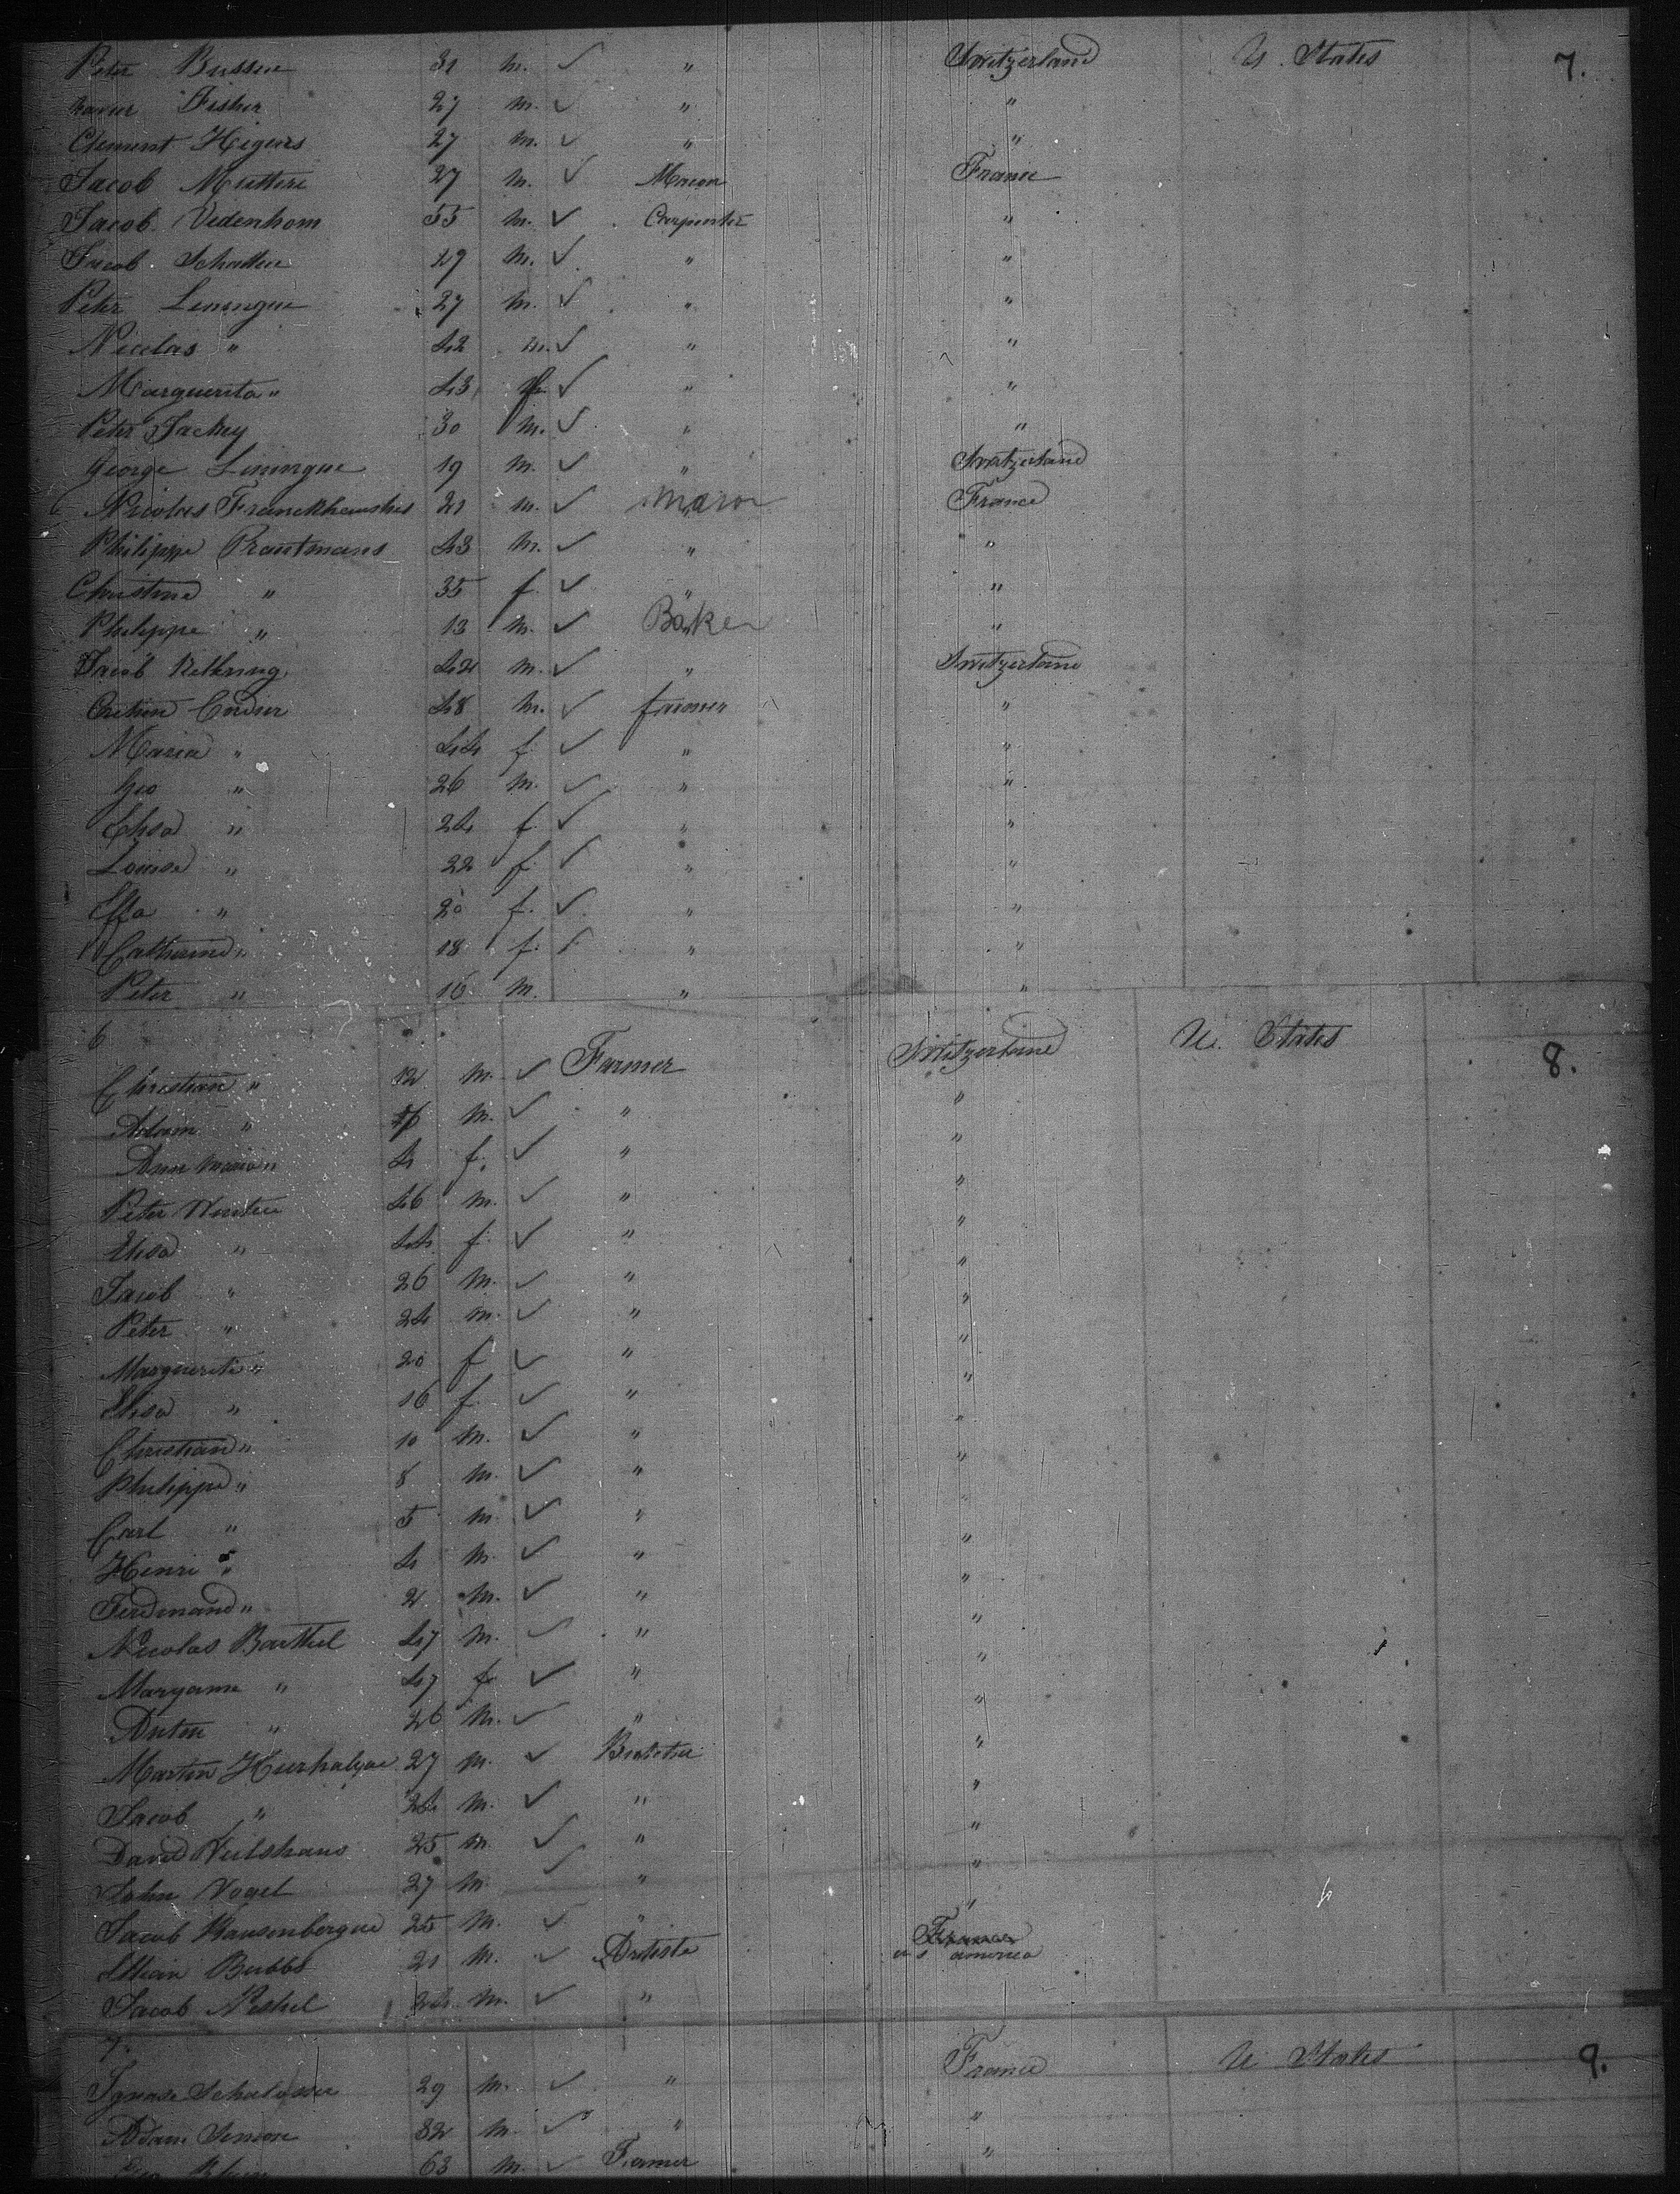 Peter Bussere 31 m. ✓ " Switzerland U. States 7.
Xavier Fisher 27 m. ✓ " "
Clement Higeurs 27 m. ✓ " "
Jacob Muttere 27 m. ✓ Macon France
Jacob Vedenhom 55 m. ✓ Carpenter "
Jacob Schattere 29 m. ✓ " "
Peter Leningue 27 m. ✓ " "
Nicolas " 42 m. ✓ " "
Marguerita " 43 f ✓ " "
Peter Jackey 30 m. ✓ " "
George Liningue 19 m. ✓ " Switzerland
Nicolas Franckhaushes 21 m. ✓ Mason France
Philippe Trautmans 43 m. ✓ " "
Christine " 35 f ✓ " "
Philippe " 13 m. ✓ Baker "
Jacob 42 m. ✓ " Switzerland
Cordier 48 m. ✓ farmer "
Maria " 44 f ✓ " "
Geo " 26 m. ✓ " "
Elisa " 24 f ✓ " "
Louise " 22 f ✓ " "
Effa " 20 f. ✓ " "
Catharine " 18 f. ✓ " "
Peter " 16 m. " "
6
Christian " 12 m. ✓ Farmer Switzerland U. States 8.
Adam " m. ✓ " "
Ann Maria " 4 f. ✓ " "
Peter 46 m. ✓ " "
Elisa " 44 f. ✓ " "
Jacob " 26 m. ✓ " "
Peter " 24 m. ✓ " "
Marguerite " 20 f ✓ " "
Elisa " 16 f. ✓ " "
Christian " 10 m. ✓ " "
Philippe " 8 m. ✓ " "
Carl " 5 m. ✓ " "
Henri " 4 m. ✓ " "
Ferdinand " 2 m. ✓ " "
Nicolas Barthel 47 m. ✓ " "
Maryanne " 47 f ✓ " "
Anton " 26 m. ✓ " "
Martin 27 m. ✓ "
Jacob " 24 m. ✓ " "
David 25 m. ✓ " "
John Vogel 27 m. ✓ " "
Jacob Hausenbergue 25 m. ✓ " "
Bubbs 21 m. ✓ Artiste France u s america
Jacob 24 m. ✓ "
7.
Ignase 29 m. ✓ " France U States 9.
Adam Simon 32 m. ✓ " "
63 m. ✓ Farmer "